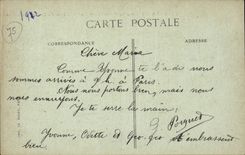 1922
75
CARTE POSTALE
CORRESPONDANCE
ADRESSE
Chère Maina
Comme Yvonne te l'a dit nous
sommes arrivés à 9h à Paris.
Nous nous portons bien, mais nous
nous ennuyons.
Je te serre la main,
Yvonne, Odette et Geo-Geo t'embrassent
bien.